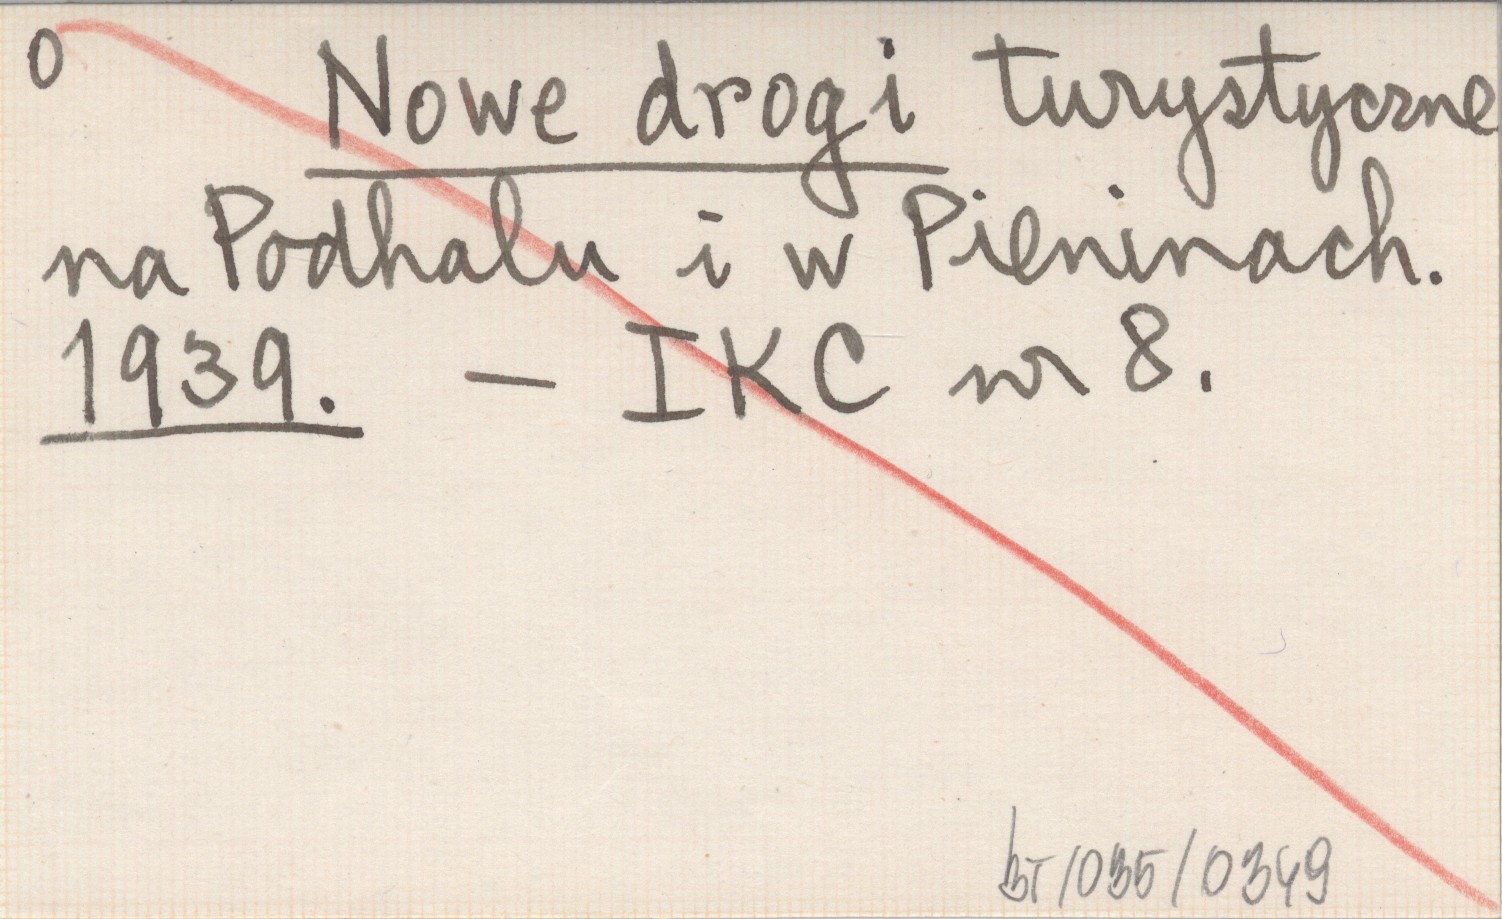 0 Nowe drogi turystyczne
na Podhalu i w Pieninach.
1939. — IKC nr 8.
bT/035/0349